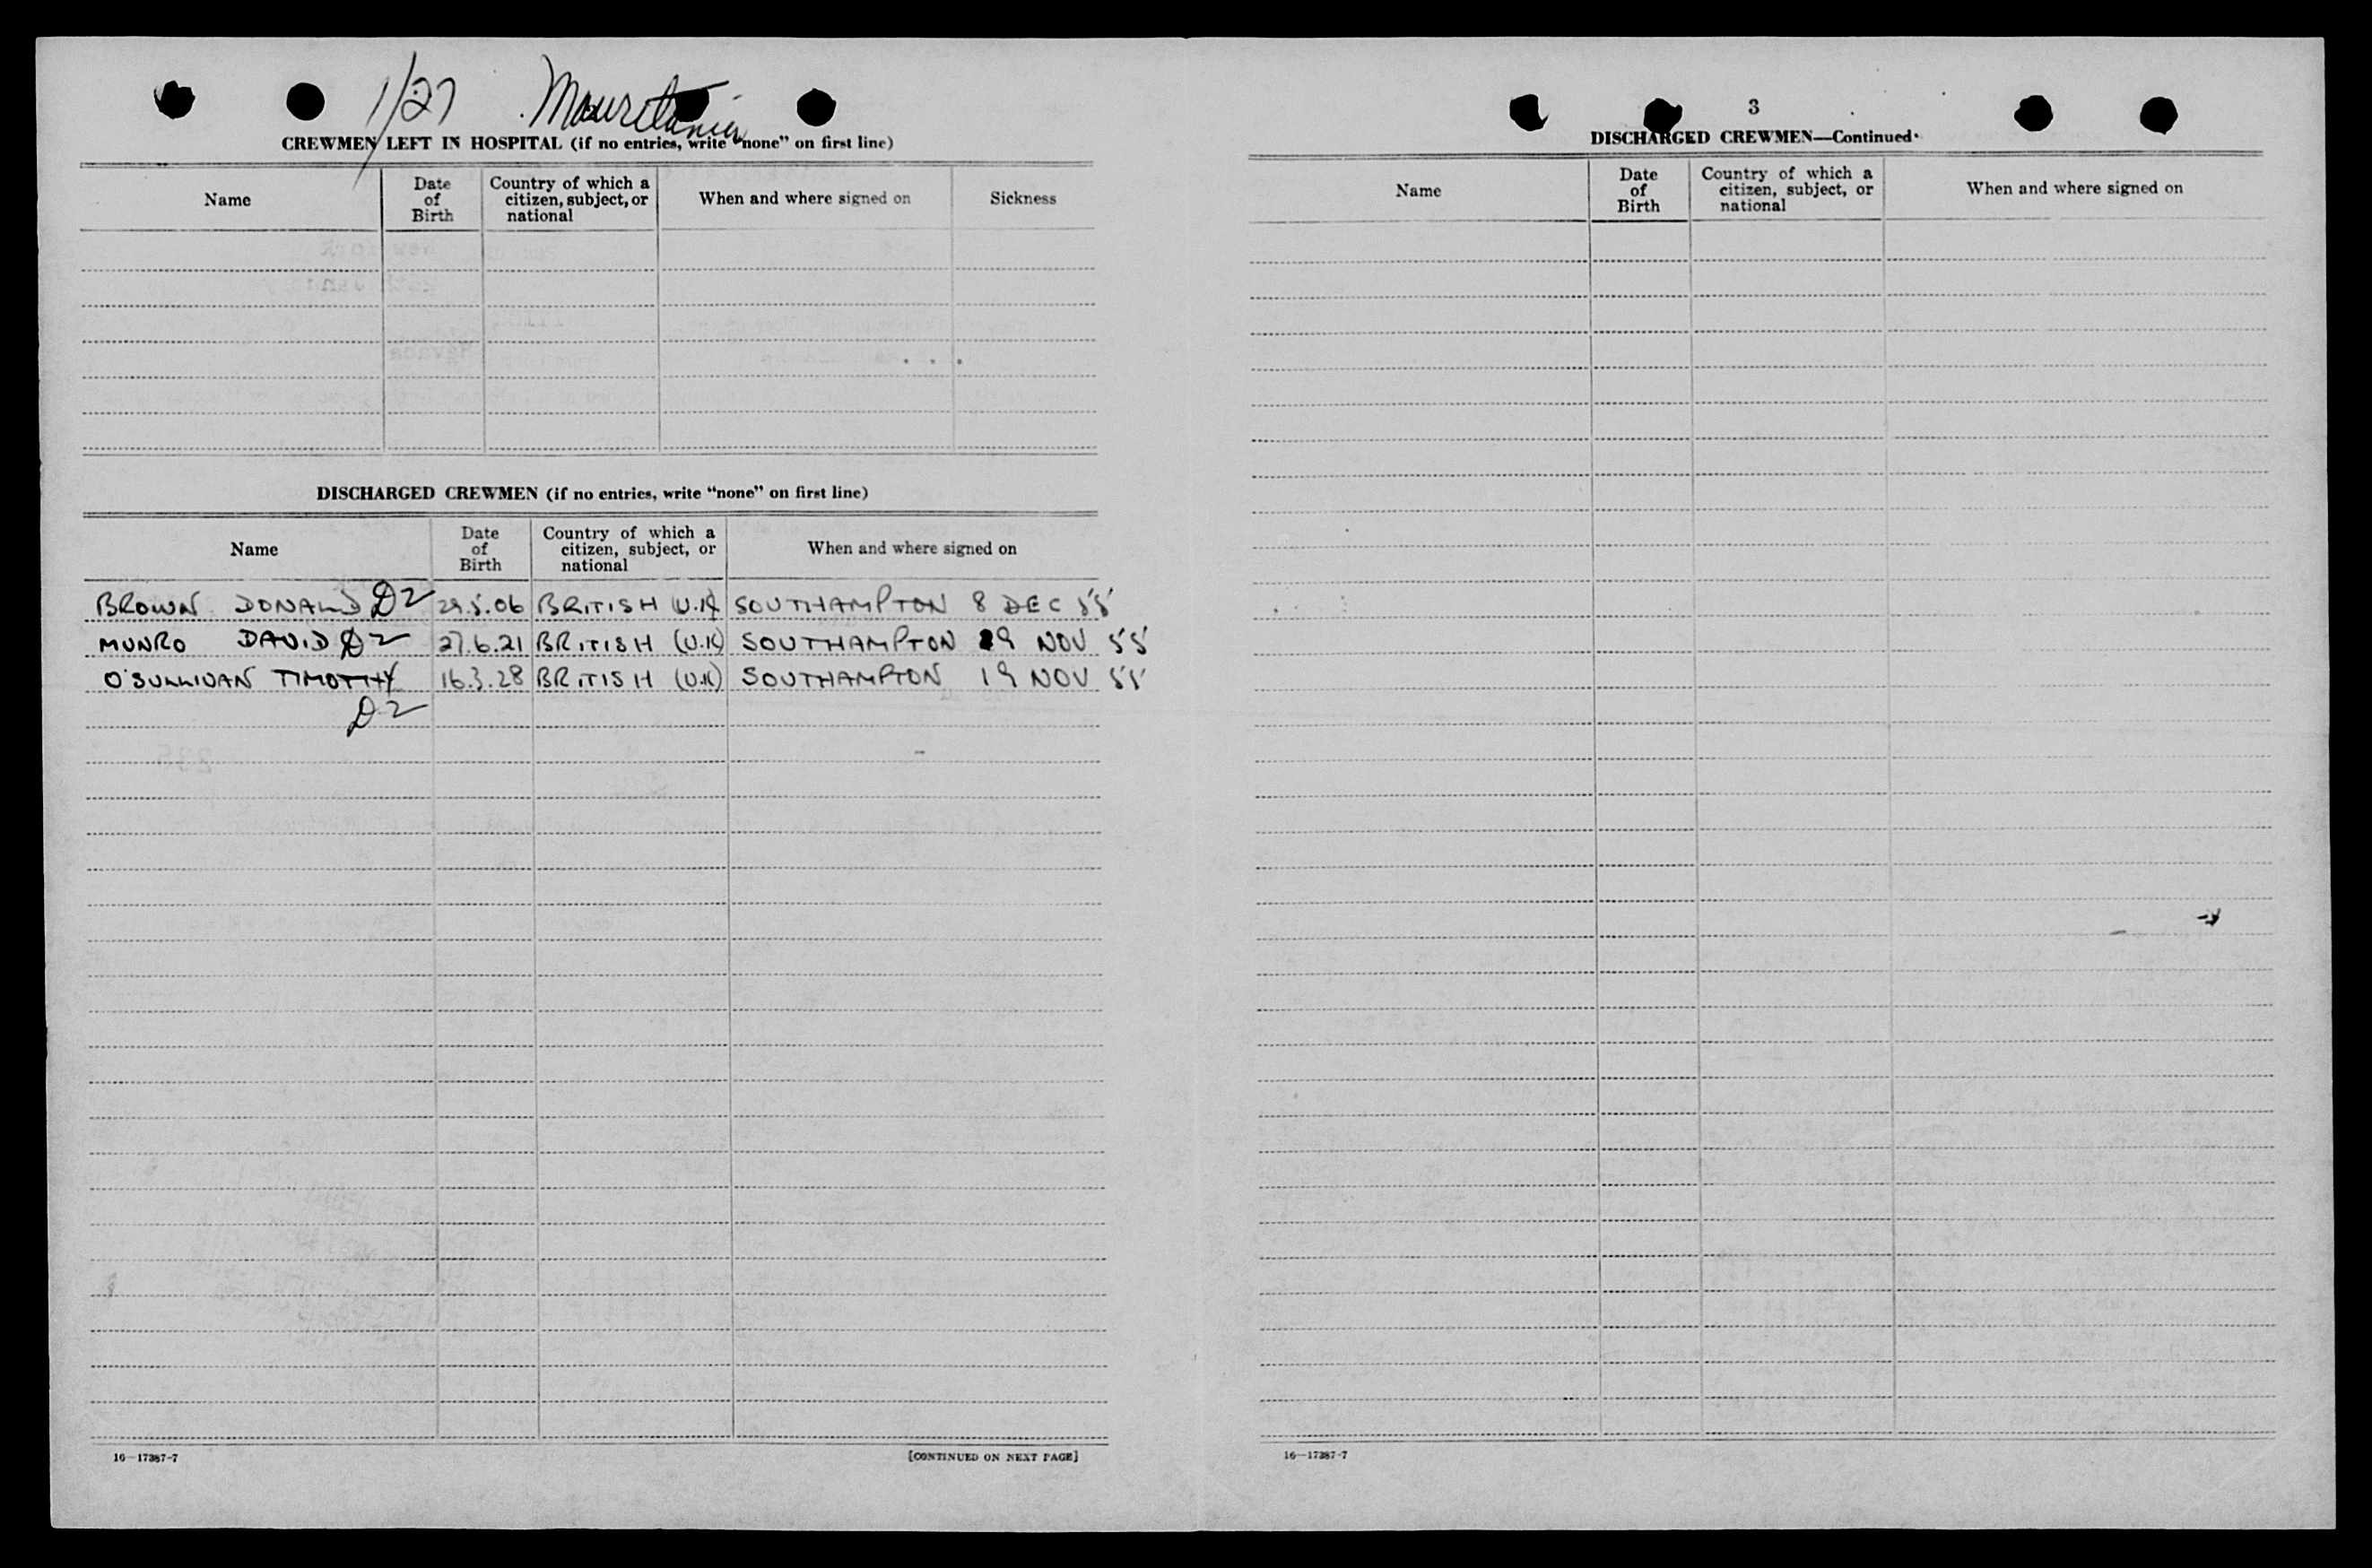 1/27 Mauretania
CREWMEN LEFT IN HOSPITAL (if no entries, write “none” on first line)
Name
Date of Birth
Country of which a citizen, subject, or national
When and where signed on
Sickness
DISCHARGED CREWMEN (if no entries, write “none” on first line)
Name
Date of Birth
Country of which a citizen, subject, or national
When and where signed on
BROWN DONALD D2 29.5.06 BRITISH (U.K) SOUTHAMPTON 8 DEC 55
MUNRO DAVID D2 27.6.21 BRITISH (U.K) SOUTHAMPTON 29 NOV 55
O'SULLIVAN TIMOTHY 16.3.28 BRITISH (U.K) SOUTHAMPTON 19 NOV 55
D2
16—17387-7
[CONTINUED ON NEXT PAGE]
3
DISCHARGED CREWMEN—Continued
Name
Date of Birth
Country of which a citizen, subject, or national
When and where signed on
16—17387-7